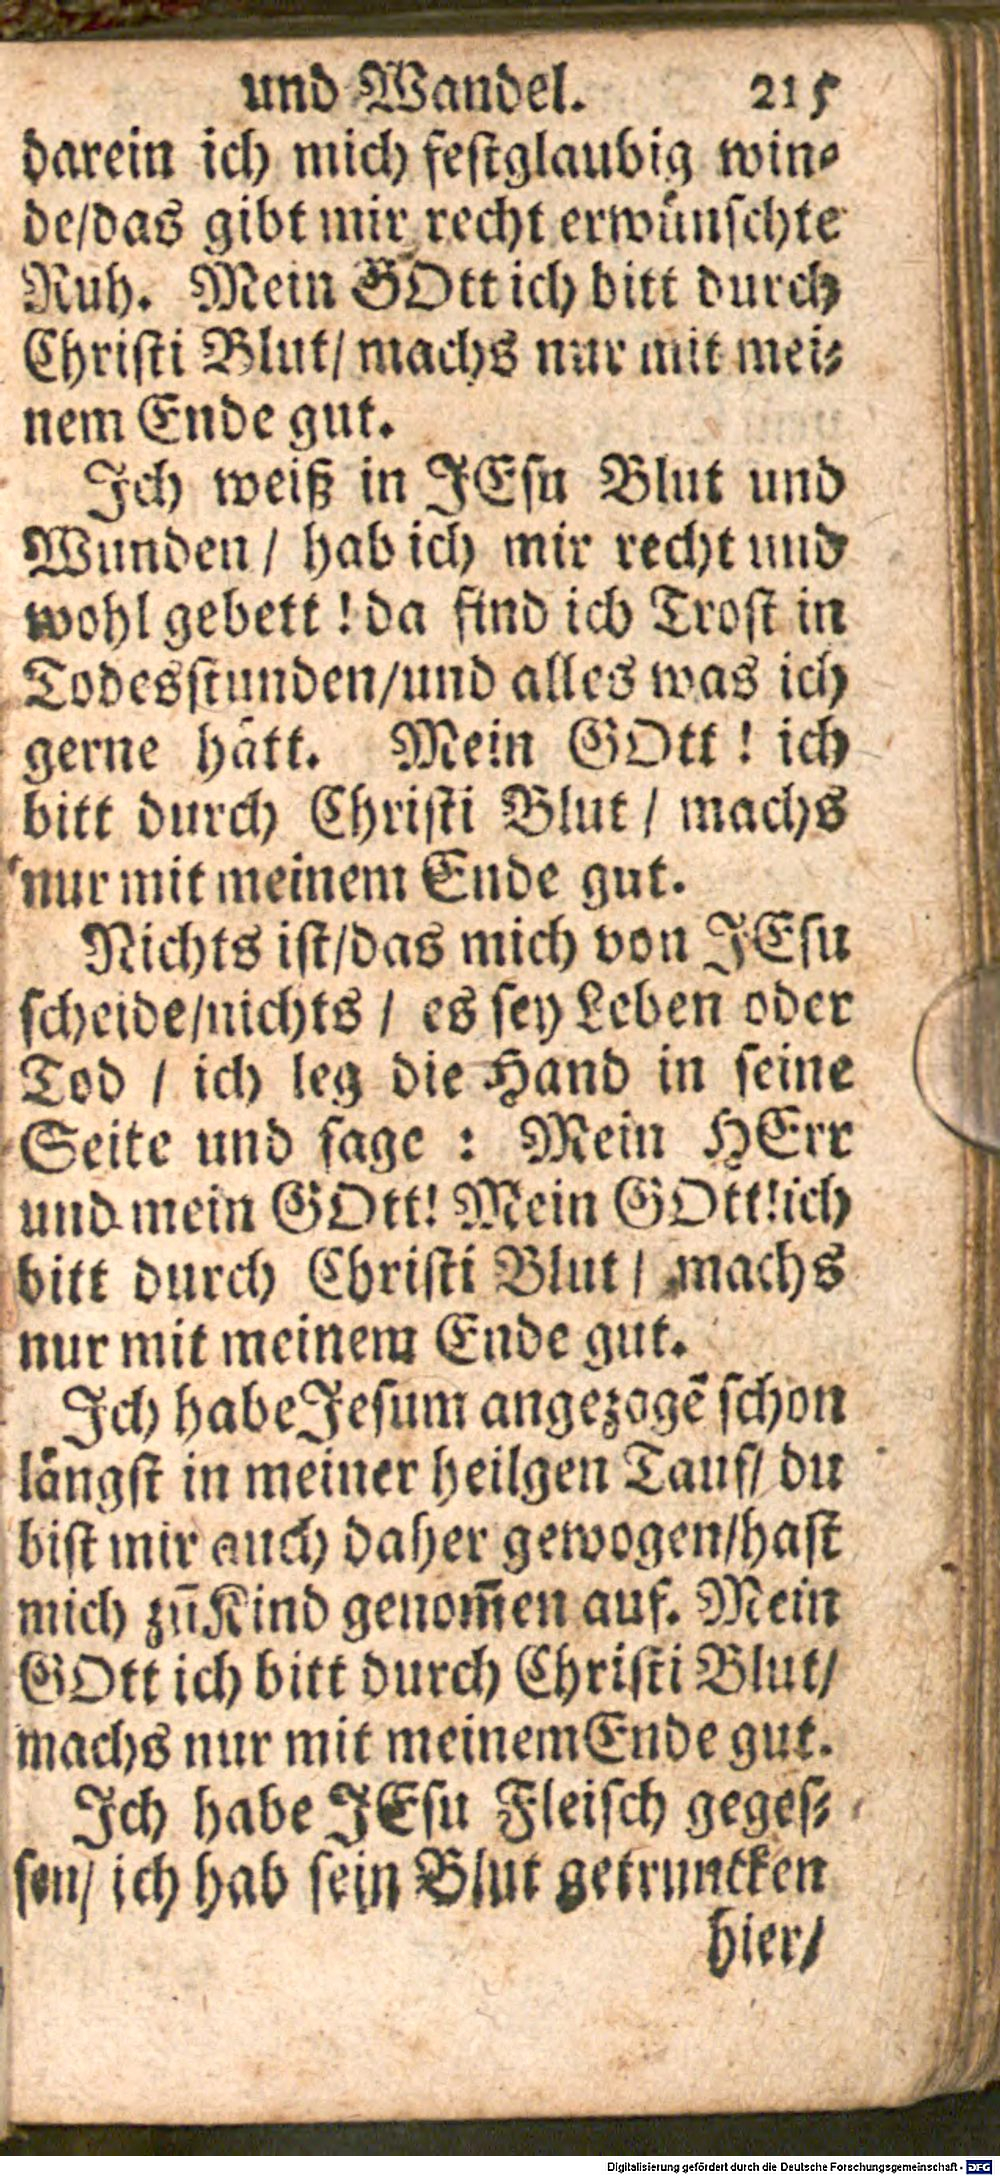 und Wandel. 215
darein ich mich festglaubig win-
de/das gibt mir recht erwünschte
Ruh. Mein GOtt ich bitt durch
Christi Blut/ machs nur mit mei-
nem Ende gut.
Ich weiß in JEsu Blut und
Wunden / hab ich mir recht und
wohl gebett ! da find ich Trost in
Todesstunden/und alles was ich
gerne hätt. Mein GOtt ! ich
bitt durch Christi Blut / machs
nur mit meinem Ende gut.
Nichts ist/das mich von JEsu
scheide/nichts / es sey Leben oder
Tod / ich leg die Hand in seine
Seite und sage : Mein HErr
und mein GOtt! Mein GOtt!ich
bitt durch Christi Blut / machs
nur mit meinem Ende gut.
Ich habe Jesum angezogē schon
längst in meiner heilgen Tauf/ du
bist mir auch daher gewogen/hast
mich zū Kind genom̄en auf. Mein
GOtt ich bitt durch Christi Blut/
machs nur mit meinem Ende gut.
Ich habe JEsu Fleisch geges-
sen/ ich hab sein Blut getruncken
hier/
Digitalisierung gefördert durch die Deutsche Forschungsgemeinschaft - DFG